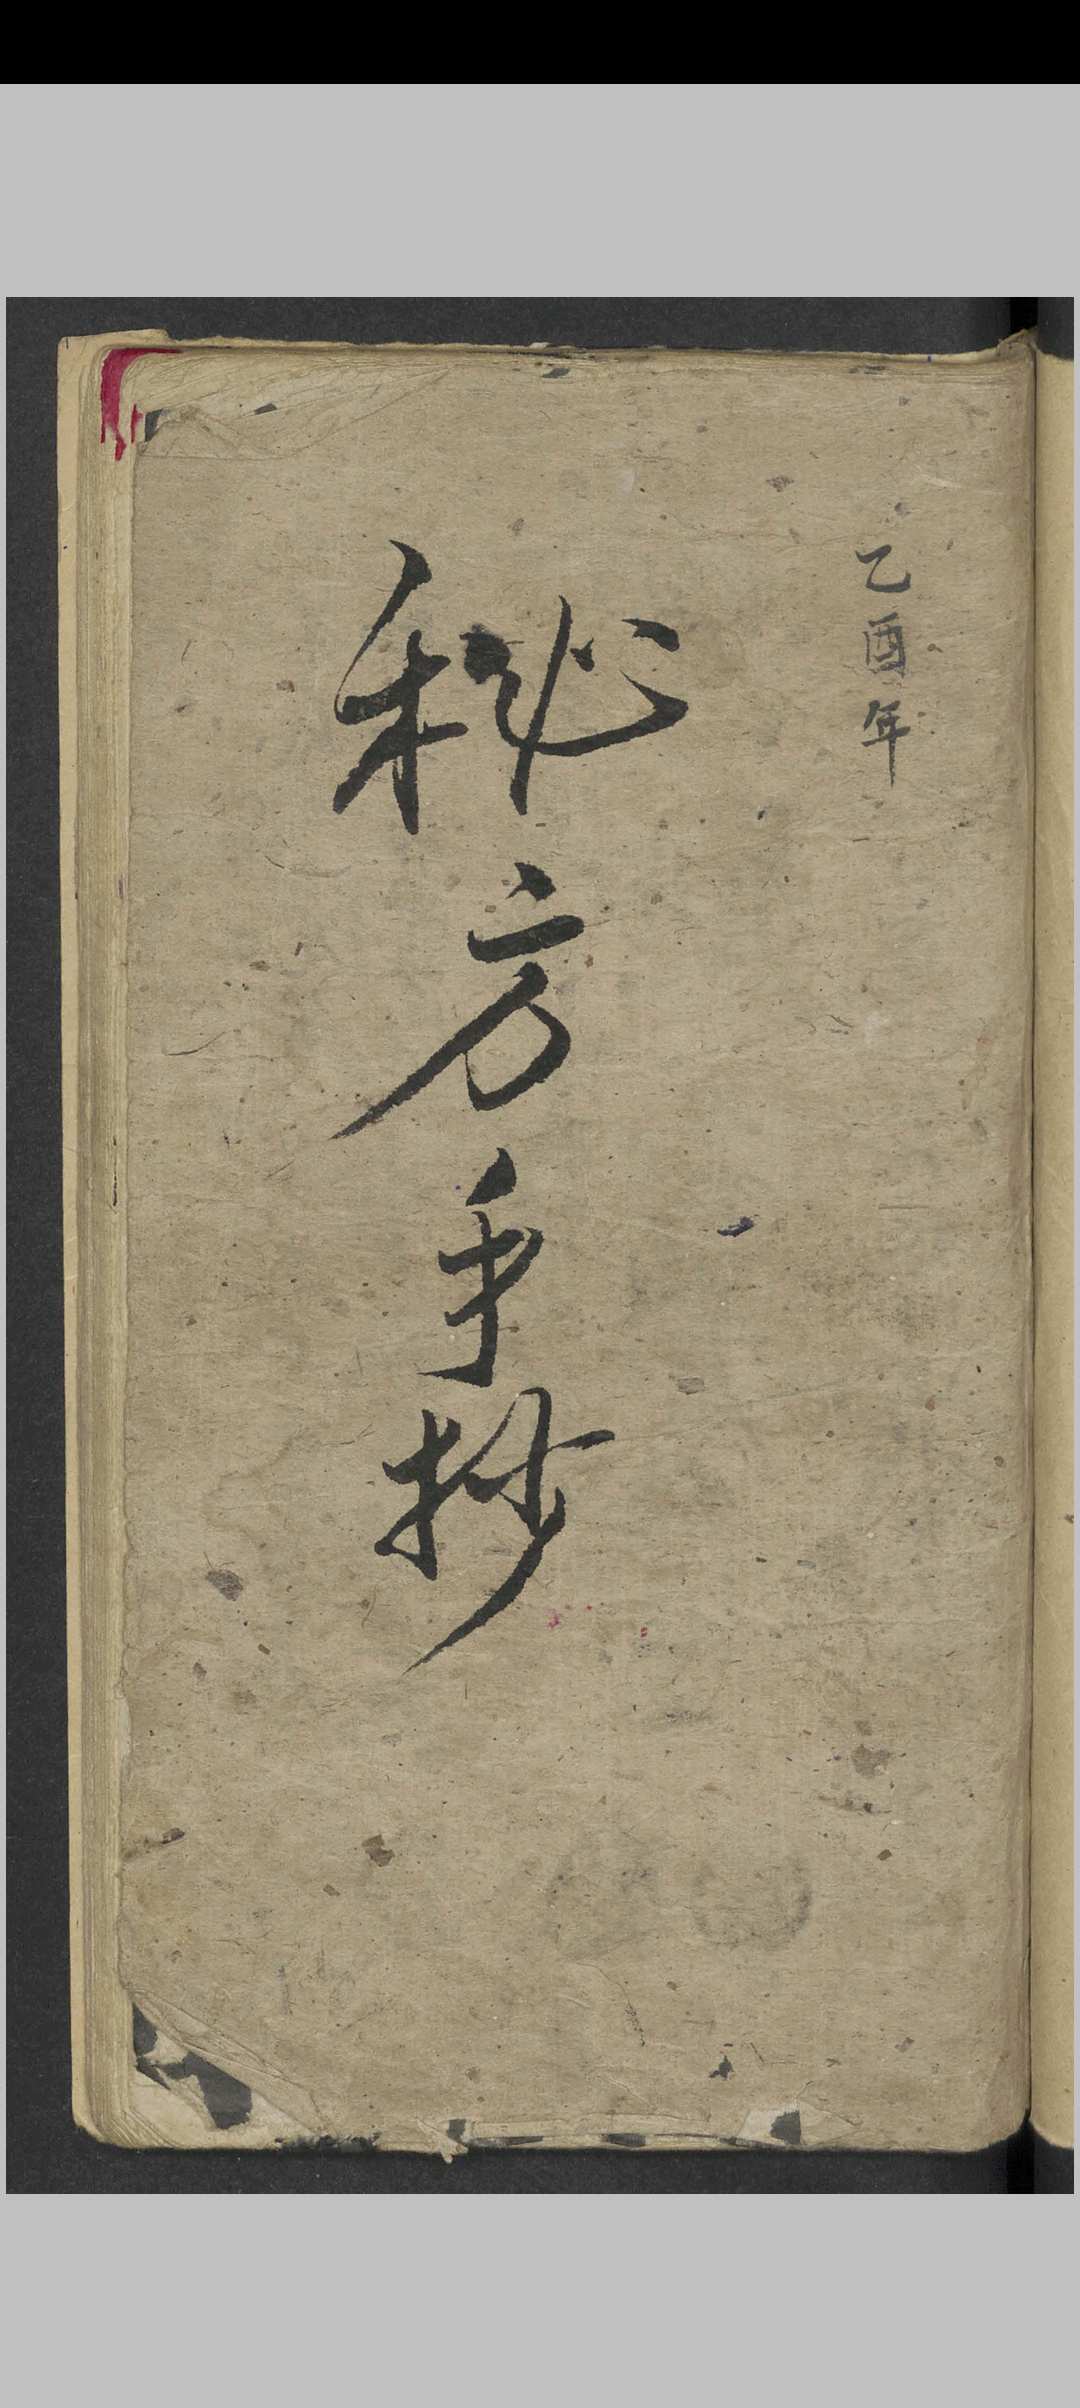 乙酉年
秘方手抄